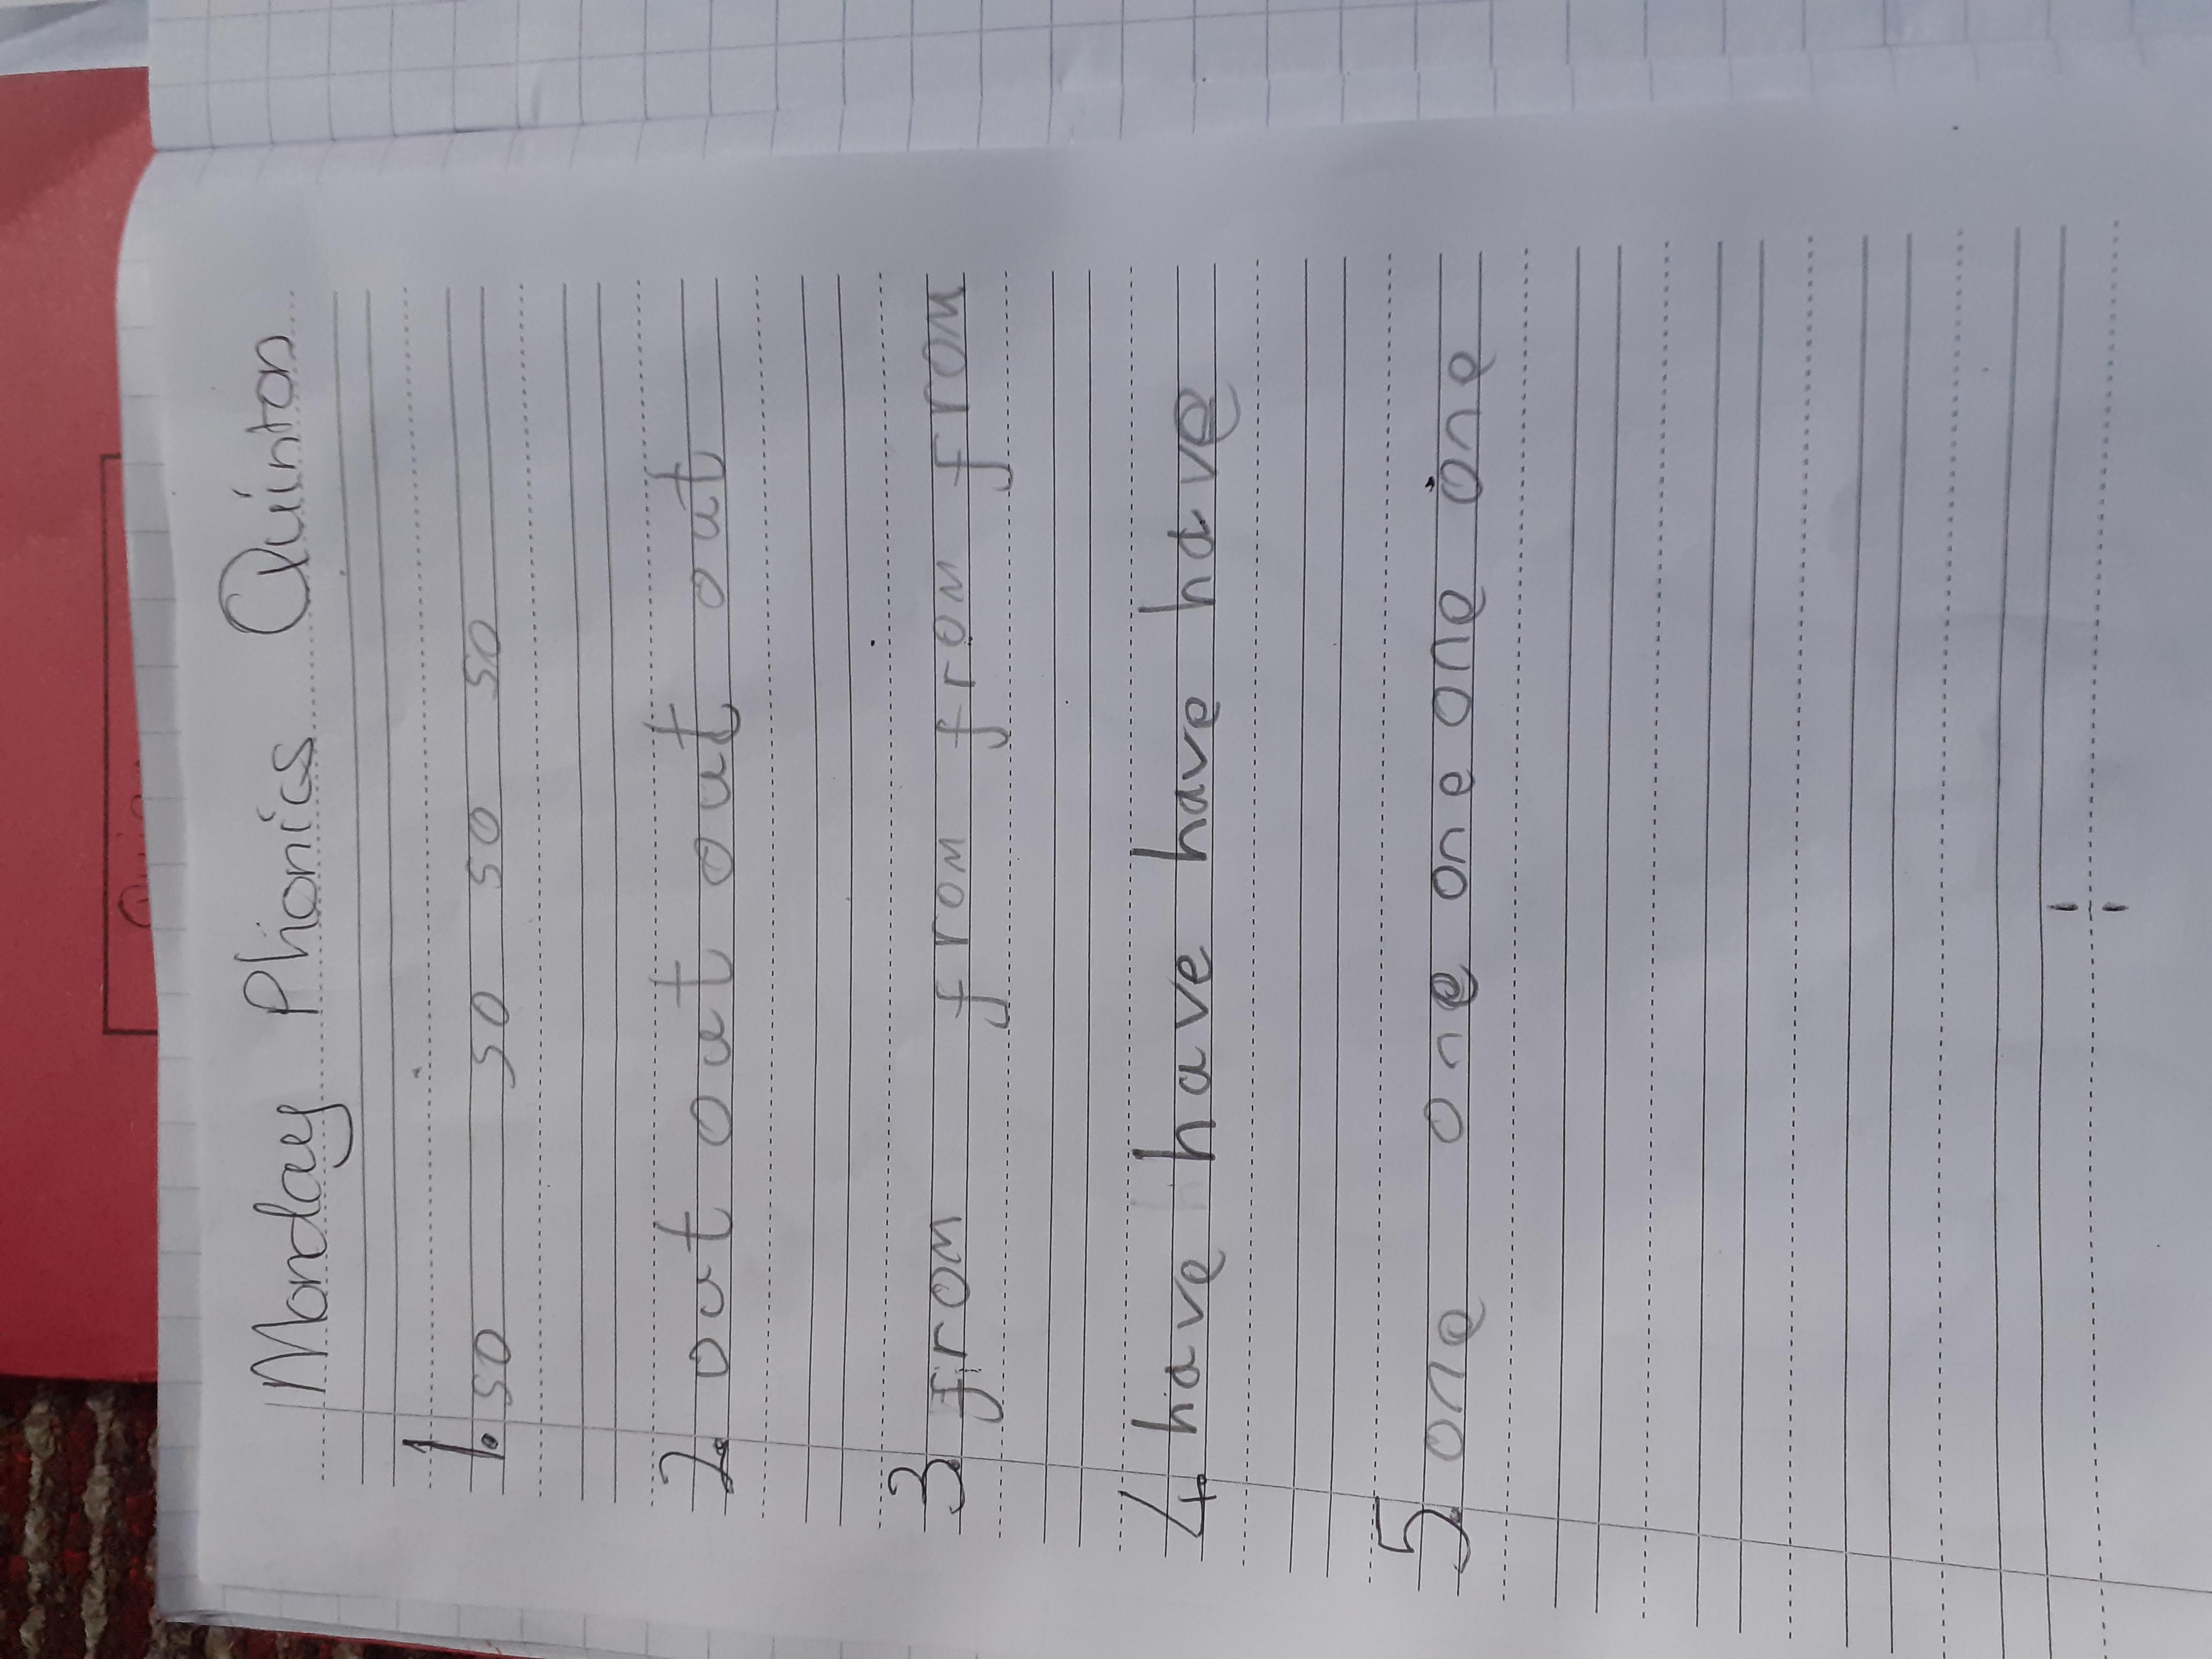 Monday Phonics Quinton
1. so so so so
2. out out out out
3. from from from from
4. have have have have
5. one one one one one